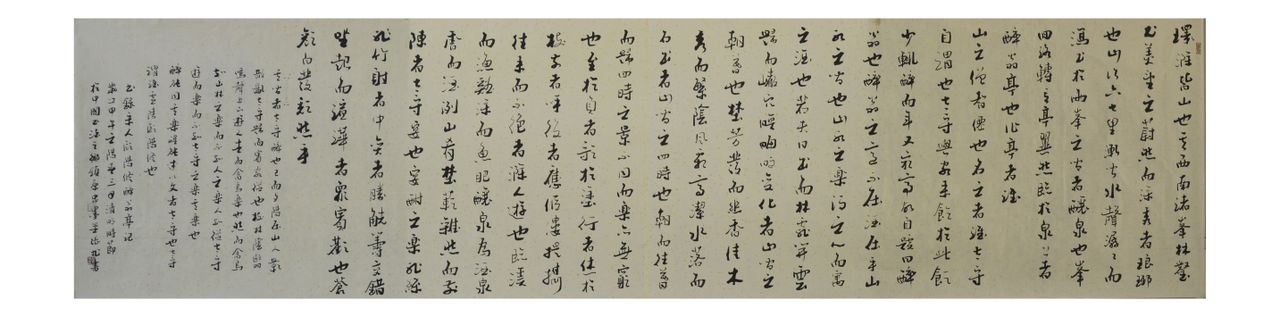 環滁皆山也其西南諸峯林壑
尤美望之蔚然而深秀者琅琊
也山行六七里漸聞水聲潺潺而
瀉出於兩峯之間者釀泉也峯
回路轉有亭翼然臨於泉上者
醉翁亭也作亭者誰
山之僧智僊也名之者誰太守
自謂也太守與客來飲於此飲
少輒醉而年又最高故自號曰醉
翁也醉翁之意不在酒在乎山
水之間也山水之樂得之心而寓
之酒也若夫日出而林霏開雲
歸而巖穴暝晦明變化者山間之
朝暮也野芳發而幽香佳木
秀而繁陰風霜高潔水落而
石出者山間之四時也朝而往暮
而歸四時之景不同而樂亦無窮
也至於負者歌於塗行者休於
樹前者呼後者應傴僂提攜
往來而不絕者滁人遊也臨溪
而漁溪深而魚肥釀泉為酒泉
香而酒洌山肴野蔌雜然而前
陳者太守宴也宴酣之樂非絲
非竹射者中奕者勝觥籌交錯
坐起而諠譁者衆賓歡也蒼
顏白髮頹然乎
其間者太守醉也已而夕陽在山人影
散亂太守歸而賓客從也樹林陰翳
鳴聲上下遊人去而禽鳥樂也然而禽鳥
知山林之樂而不知人之樂人知從太守
遊而樂而不知太守之樂其樂也
醉能同其樂醒能述以文者太守也太守
謂誰廬陵歐陽修也
右錄宋人歐陽修醉翁亭記
歲次甲午之陽春三月清明時節
於中國書法之鄉